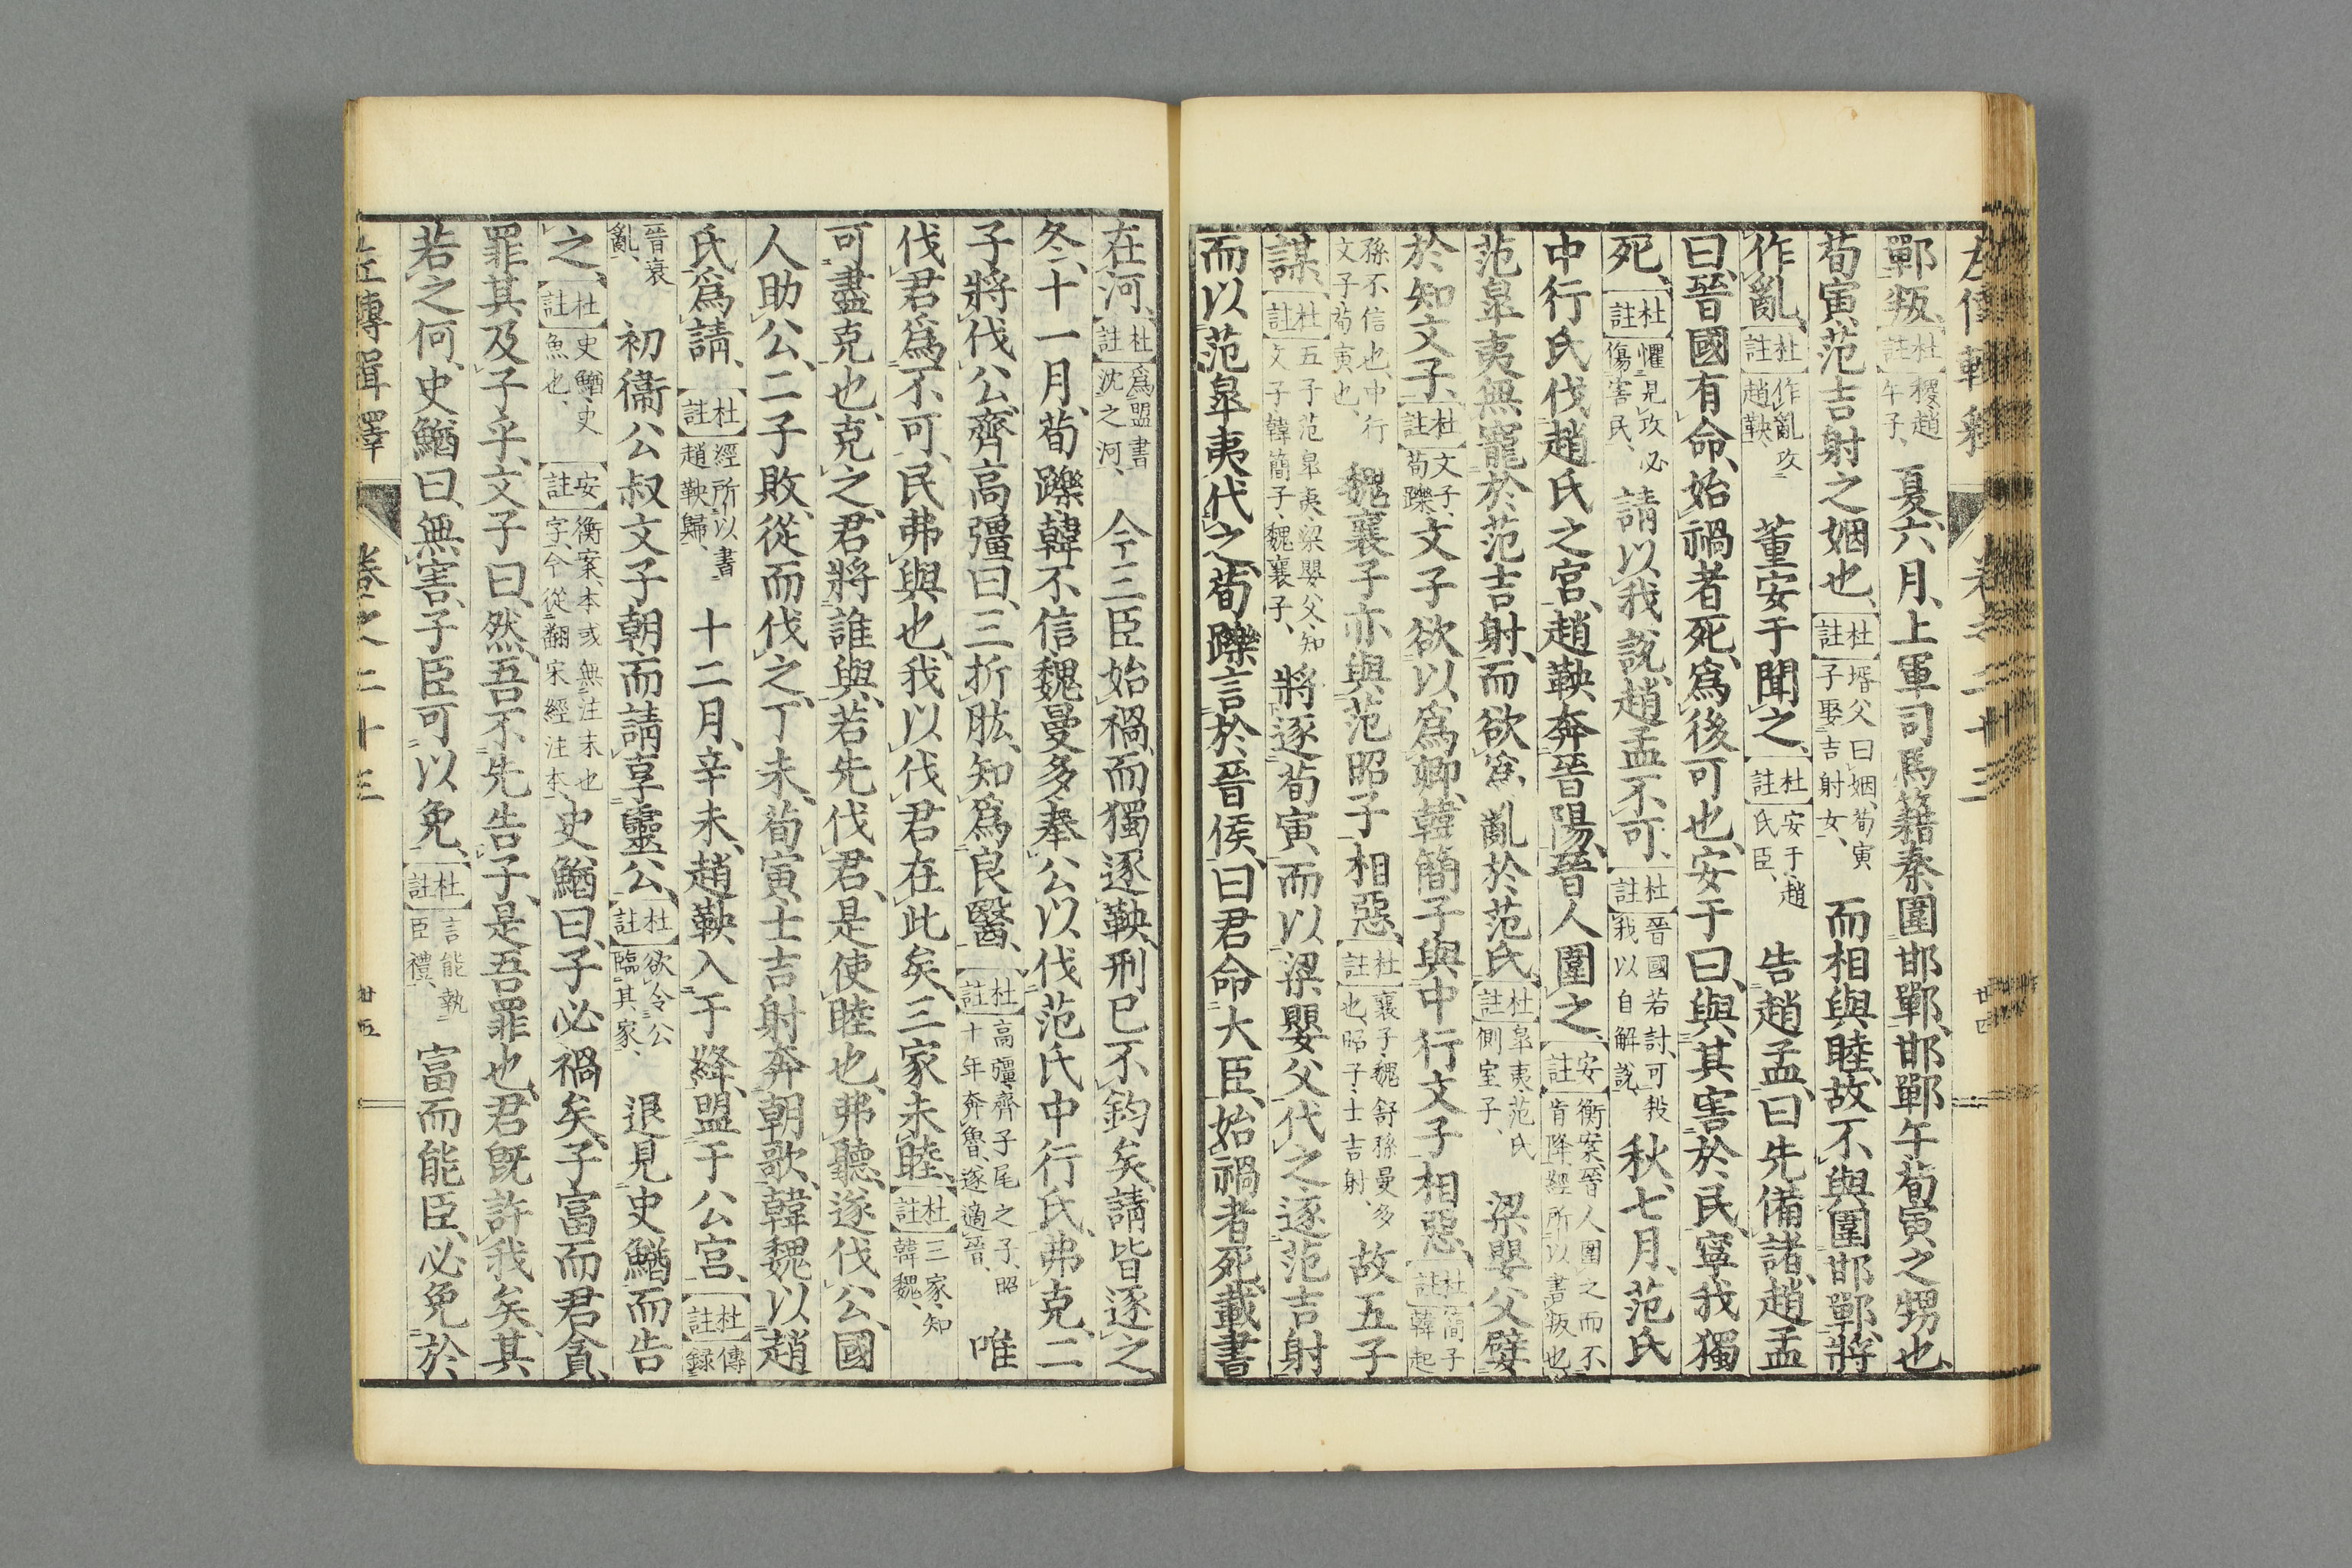 鄲叛、杜註稷、趙午子、夏六月、上軍司馬籍秦圍邯鄲、邯鄲午荀寅之甥也、
荀寅、范吉射之姻也、杜註壻父曰姻、荀寅子娶吉射女、而相與睦、故不與圍邯鄲、將
作亂、杜註作亂攻趙鞅、董安于聞之、杜註安于、趙氏臣、告趙孟、曰先備諸、趙孟
曰、晉國有命、始禍者死、爲後可也、安于曰、與其害於民、寧我獨
死、杜註懼見攻必傷害民、請以我說、趙孟不可、杜註晉國若討、可殺我以自解說、秋、七月、范氏
中行氏伐趙氏之宮、趙鞅奔晉陽、晉人圍之、安註衡案、晉人圍之而不肯降、經所以書叛也、
范皐夷無寵於范吉射、而欲爲亂於范氏、杜註皐夷、范氏側室子、梁嬰父嬖
於知文子、杜註文子、荀躒、文子欲以爲卿、韓簡子與中行文子相惡、杜註簡子韓起
孫不信也、中行文子、荀寅也、魏襄子亦與范昭子相惡、杜註襄子、魏舒孫曼多也、昭子、士吉射、故五子
謀、杜註五子、范皐夷、梁嬰父、知文子、韓簡子、魏襄子、將逐荀寅、而以梁嬰父代之、逐范吉射
而以范皐夷代之、荀躒言於晉侯、曰君命大臣、始禍者死、載書
在河、杜註爲盟書沈之河、今三臣始禍、而獨逐鞅、刑已不鈞矣、請皆逐之
冬、十一月、荀躒韓不信魏曼多奉公以伐范氏中行氏、弗克、二
子將伐公、齊高彊曰、三折肱、知爲良醫、杜註高彊、齊子尾之子、昭十年奔魯、遂適晉、唯
伐君爲不可、民弗與也、我以伐君在此矣、三家未睦、杜註三家、知韓魏、
可盡克也、克之、君將誰與、若先伐君、是使睦也、弗聽、遂伐公、國
人助公、二子敗、從而伐之、丁未、荀寅士吉射奔朝歌、韓魏以趙
氏爲請、杜註經所以書趙鞅歸、十二月、辛未、趙鞅入于絳、盟于公宮、杜註傳録
晉衰亂、初衞公叔文子朝而請享靈公、杜註欲令公臨其家、退見史鰌而告
之、杜註史鰌、史魚也、安註衡案、本或無注末也字、今從翻宋經注本、史鰌曰、子必禍矣、子富而君貪、
罪其及子乎、文子曰、然、吾不先告子、是吾罪也、君旣許我矣、其
若之何、史鰌曰、無害、子臣可以免、杜註言能執臣禮、富而能臣、必免於
左傳輯釋 卷之二十三 廿五